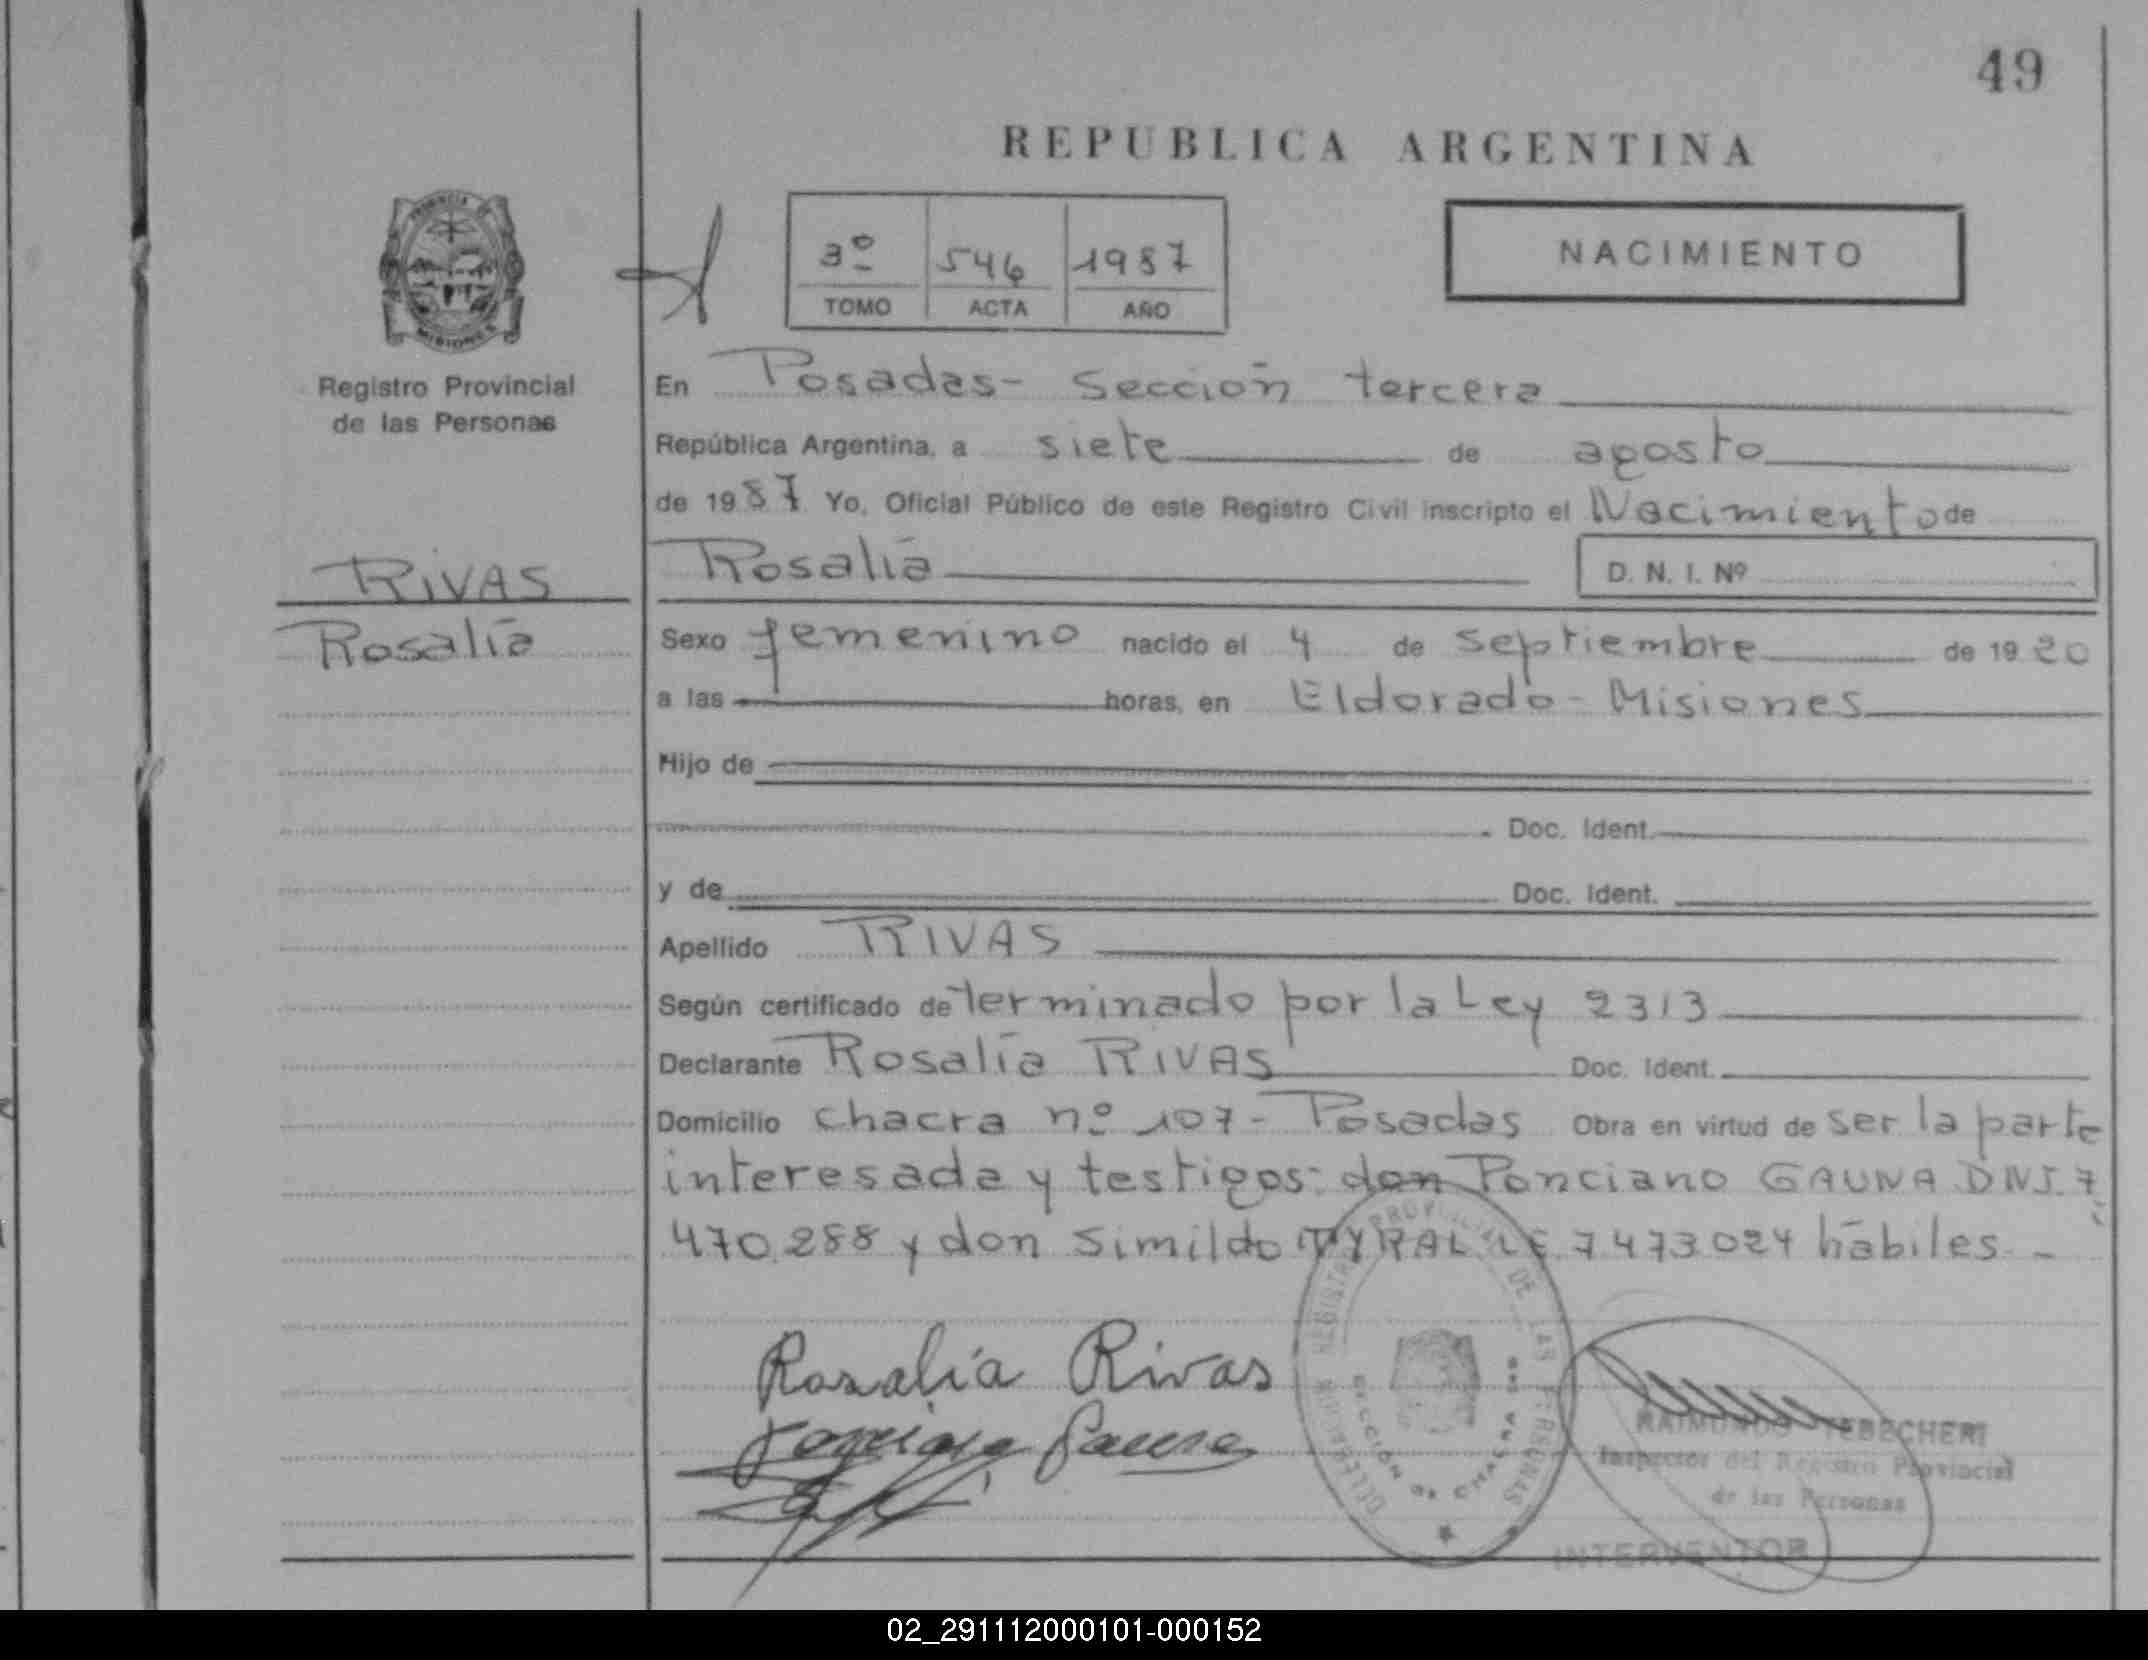 49
REPUBLICA ARGENTINA
PROVINCIA DE
MISIONES
3º 546 1987
TOMO ACTA AÑO
NACIMIENTO
Registro Provincial
de las Personas
En Posadas- Sección tercera
República Argentina, a siete de agosto
de 1987 Yo, Oficial Público de este Registro Civil inscripto el Nacimiento de
RIVAS
Rosalía
Rosalía D. N. I. Nº
Sexo femenino nacido el 4 de septiembre de 1920
a las horas, en Eldorado - Misiones
Hijo de
Doc. Ident.
y de Doc. Ident.
Apellido RIVAS
Según certificado determinado por la Ley 2313
Declarante Rosalía RIVAS Doc. Ident.
Domicilio chacra nº 107 - Posadas Obra en virtud de ser la parte
interesada y testigos: don Ponciano GAUNA DNI. 7
470.288 y don Simildo 7473024 hábiles -
Rosalía Rivas
RAIMUNDO TEBECHERI
Inspector del Registro Provincial
de las Personas
INTERVENTOR
02_291112000101-000152